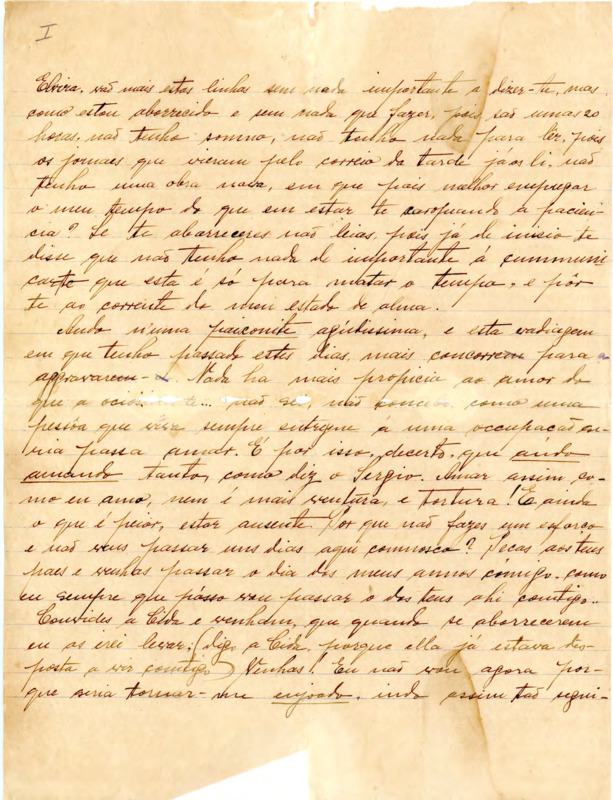 I
Elvira, vão mais estas linhas sem nada importante a dizer-te, mas
como estou aborrecido e sem nada que fazer, pois são umas 20
horas, não tenho somno, não tenho nada para lêr, pois
os jornaes que vieram pelo correio da tarde já os li, não
tenho uma obra nova, em que pois melhor empregar
o meu tempo do que em estar te caropeando a pacien-
cia? Se te aborreceres não leias, pois já de inicio te
disse que não tenho nada de importante á communi
car-te que esta é só para matar o tempo, e pôr
té ao corrente do meu estado de alma.
Ando n'uma paiconite agütissima, e esta vadiagem
em que tenho passado estes dias, mais concorrem para a
aggravarem-. Nada ha mais propicia ao amor do
que a não sei não concebo como uma
pessôa que vive sempre entregue a uma occupação se-
ria possa amar. É por isso, decerto, que ando
amando tanto, como diz o Sergio. Amar assim co-
mo eu amo, nem é mais ventura, e tortura! E ainda
o que é peior, estar ausente. Por que não fazes um esforço
e não vens passar uns dias aqui comnosco? Peças aos teus
paes e venhas passar o dia dos meus annos cómigo, como
eu sempre que pósso vou passar o dos teus ahi comtigo..
Convides a Cida e venham, que quando se aborrecerem
eu as irei levar. (digo a Cida, porque ella já estava dis-
posta a vir comtigo) Venhas! Eu não vou agora por-
que seria tornar-me enjoado, indo assim tão segui-